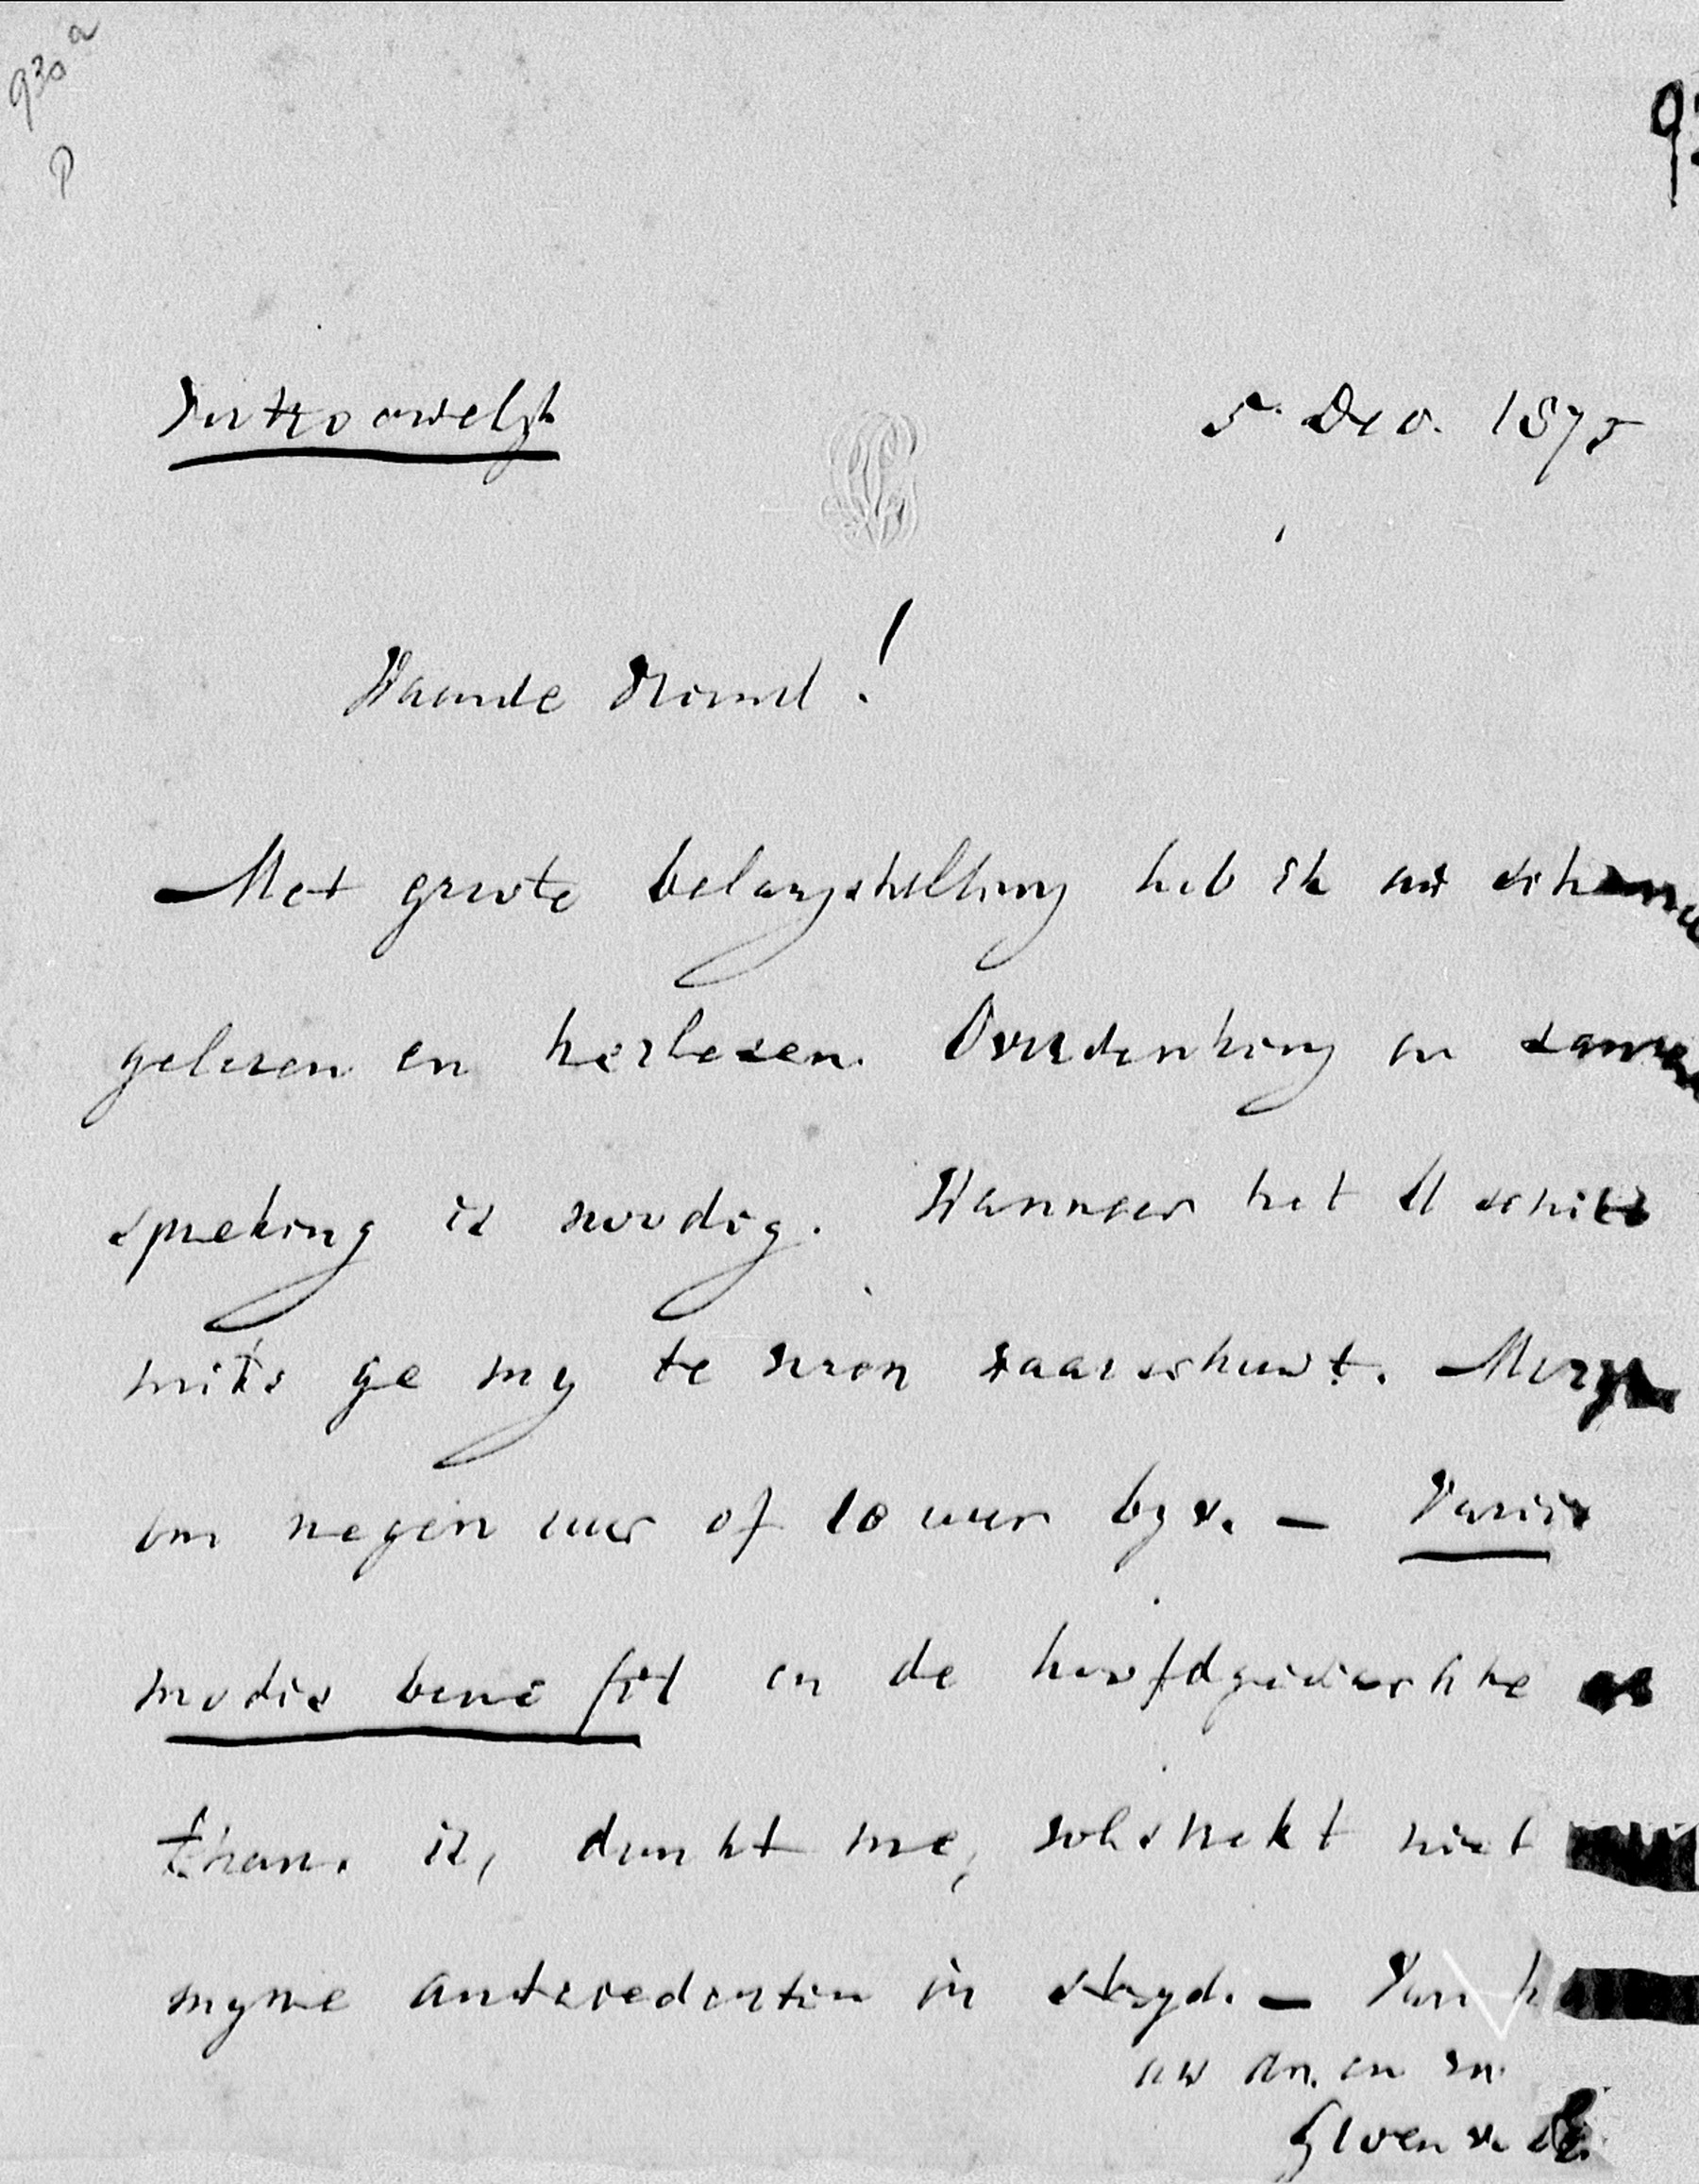 930 a
P
Vertrouwelijk
5 Dec. 1875
Waarde Vriend!
Met groote belangstelling heb ik uw
gelezen en herlezen. Overdenking en
spreking is noodig. Wanneer het U schikt
mits ge my te voren waarschuwt. Morgen
om negen uur of 10 uur byv. — Variis
modis bene fit en de hoofdgedachte
thans is, dunkt me, volstrekt niet
myne antecedenten in stryd. — Van
uw dn. en vr.
Groen v. P.